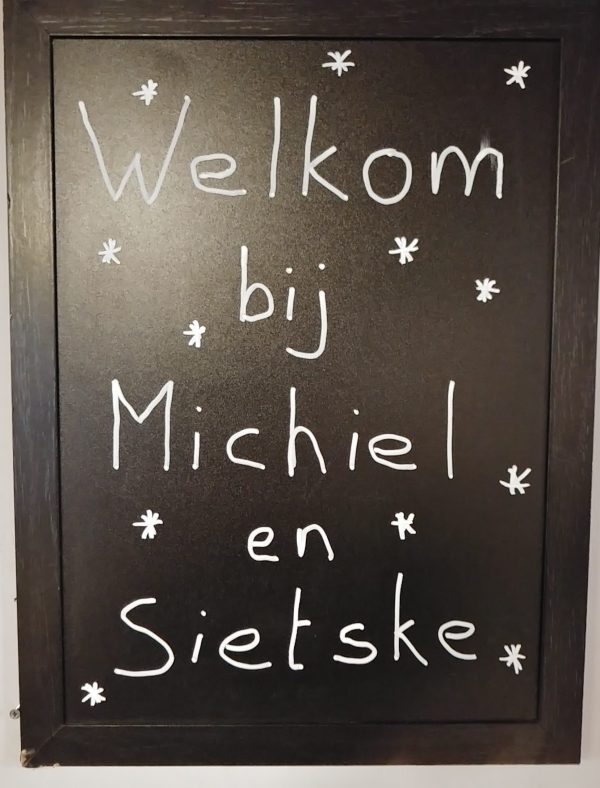 Welkom
bij
Michiel
en
Sietske